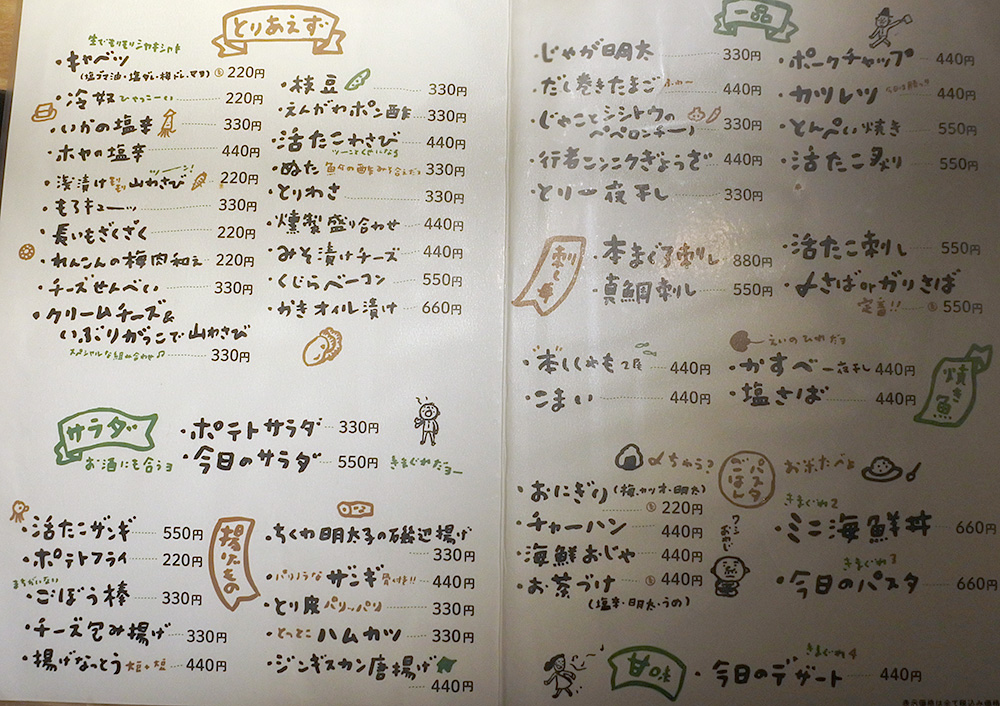 とりあえず
生でもりもりシャキシャキ
・キャベツ
(塩ゴマ油・塩ダレ・梅ドレ・マヨ) 各 220円
・冷奴 ひやっこーい 220円
・いかの塩辛 330円
・ホヤの塩辛 440円
・浅漬け 山わさび 220円
・もろキューッ 330円
・長いもざくざく 220円
・れんこんの梅肉和え 220円
・チーズせんべい 330円
・クリームチーズと
いぶりがっこで山わさび
スペシャルな組み合わせ♪ 330円
・枝豆 330円
・えんがわポン酢 330円
・活たこわさび 440円
・ぬた 330円
・とりわさ 330円
・燻製盛り合わせ 440円
・みそ漬けチーズ 440円
・くじらベーコン 550円
・かきオイル漬け 660円
サラダ
お酒にも合うョ
・ポテトサラダ 330円
・今日のサラダ 550円
きまぐれだョー
揚げもの
・活たこザンギ 550円
・ポテトフライ 220円
まちがいない
・ごぼう棒 330円
・チーズ包み揚げ 330円
・揚げなっとう 440円
・ちくわ明太子の磯辺揚げ
330円
・パリパリな ザンギ 骨付き!! 440円
・とり皮 パリッパリ 330円
・とっとこ ハムカツ 330円
・ジンギスカン唐揚げ
440円
一品
・じゃが明太 330円
・だし巻きたまご ふわー 440円
・じゃことシシトウの
ペペロンチーノ 330円
・行者ニンニクぎょうざ 440円
・とり一夜干し 330円
・ポークチャップ 440円
・カツレツ 440円
・とんぺい焼き 550円
・活たこ炙り 550円
刺し身
・本まぐろ刺し 880円
・真鯛刺し 550円
・活たこ刺し 550円
・〆さばorガリさば
定番!! 各 550円
焼き魚
・本ししゃも 440円
・こまい 440円
えいのひれだョ
・かすべ一夜干し 440円
・塩さば 440円
パスタ
ごはん
〆ちゃう?
お米たべよ
・おにぎり(梅・カツオ・明太)
各 220円
・チャーハン 440円
・海鮮おじや 440円
・お茶づけ 各 440円
(塩辛・明太・うめ)
きまぐれ2
・ミニ海鮮丼 660円
きまぐれ3
・今日のパスタ 660円
甘味
きまぐれ4
・今日のデザート 440円